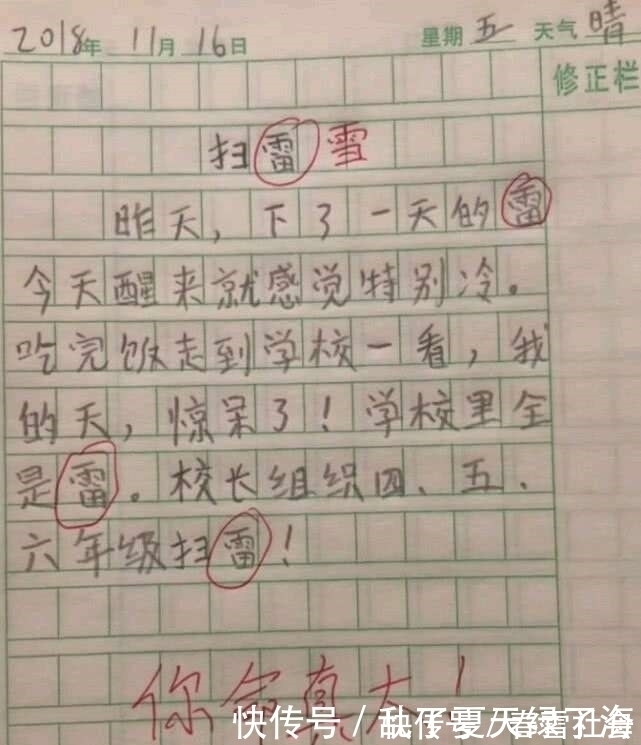 2018年 11月 16日 星期 五 天气 晴
修正栏
扫雷 雪
昨天，下了一天的雷
今天醒来就感觉特别冷。
吃完饭走到学校一看，我
的天，惊呆了！学校里全
是雷。校长组织四、五、
六年级扫雷！
你命真大！
快传号/